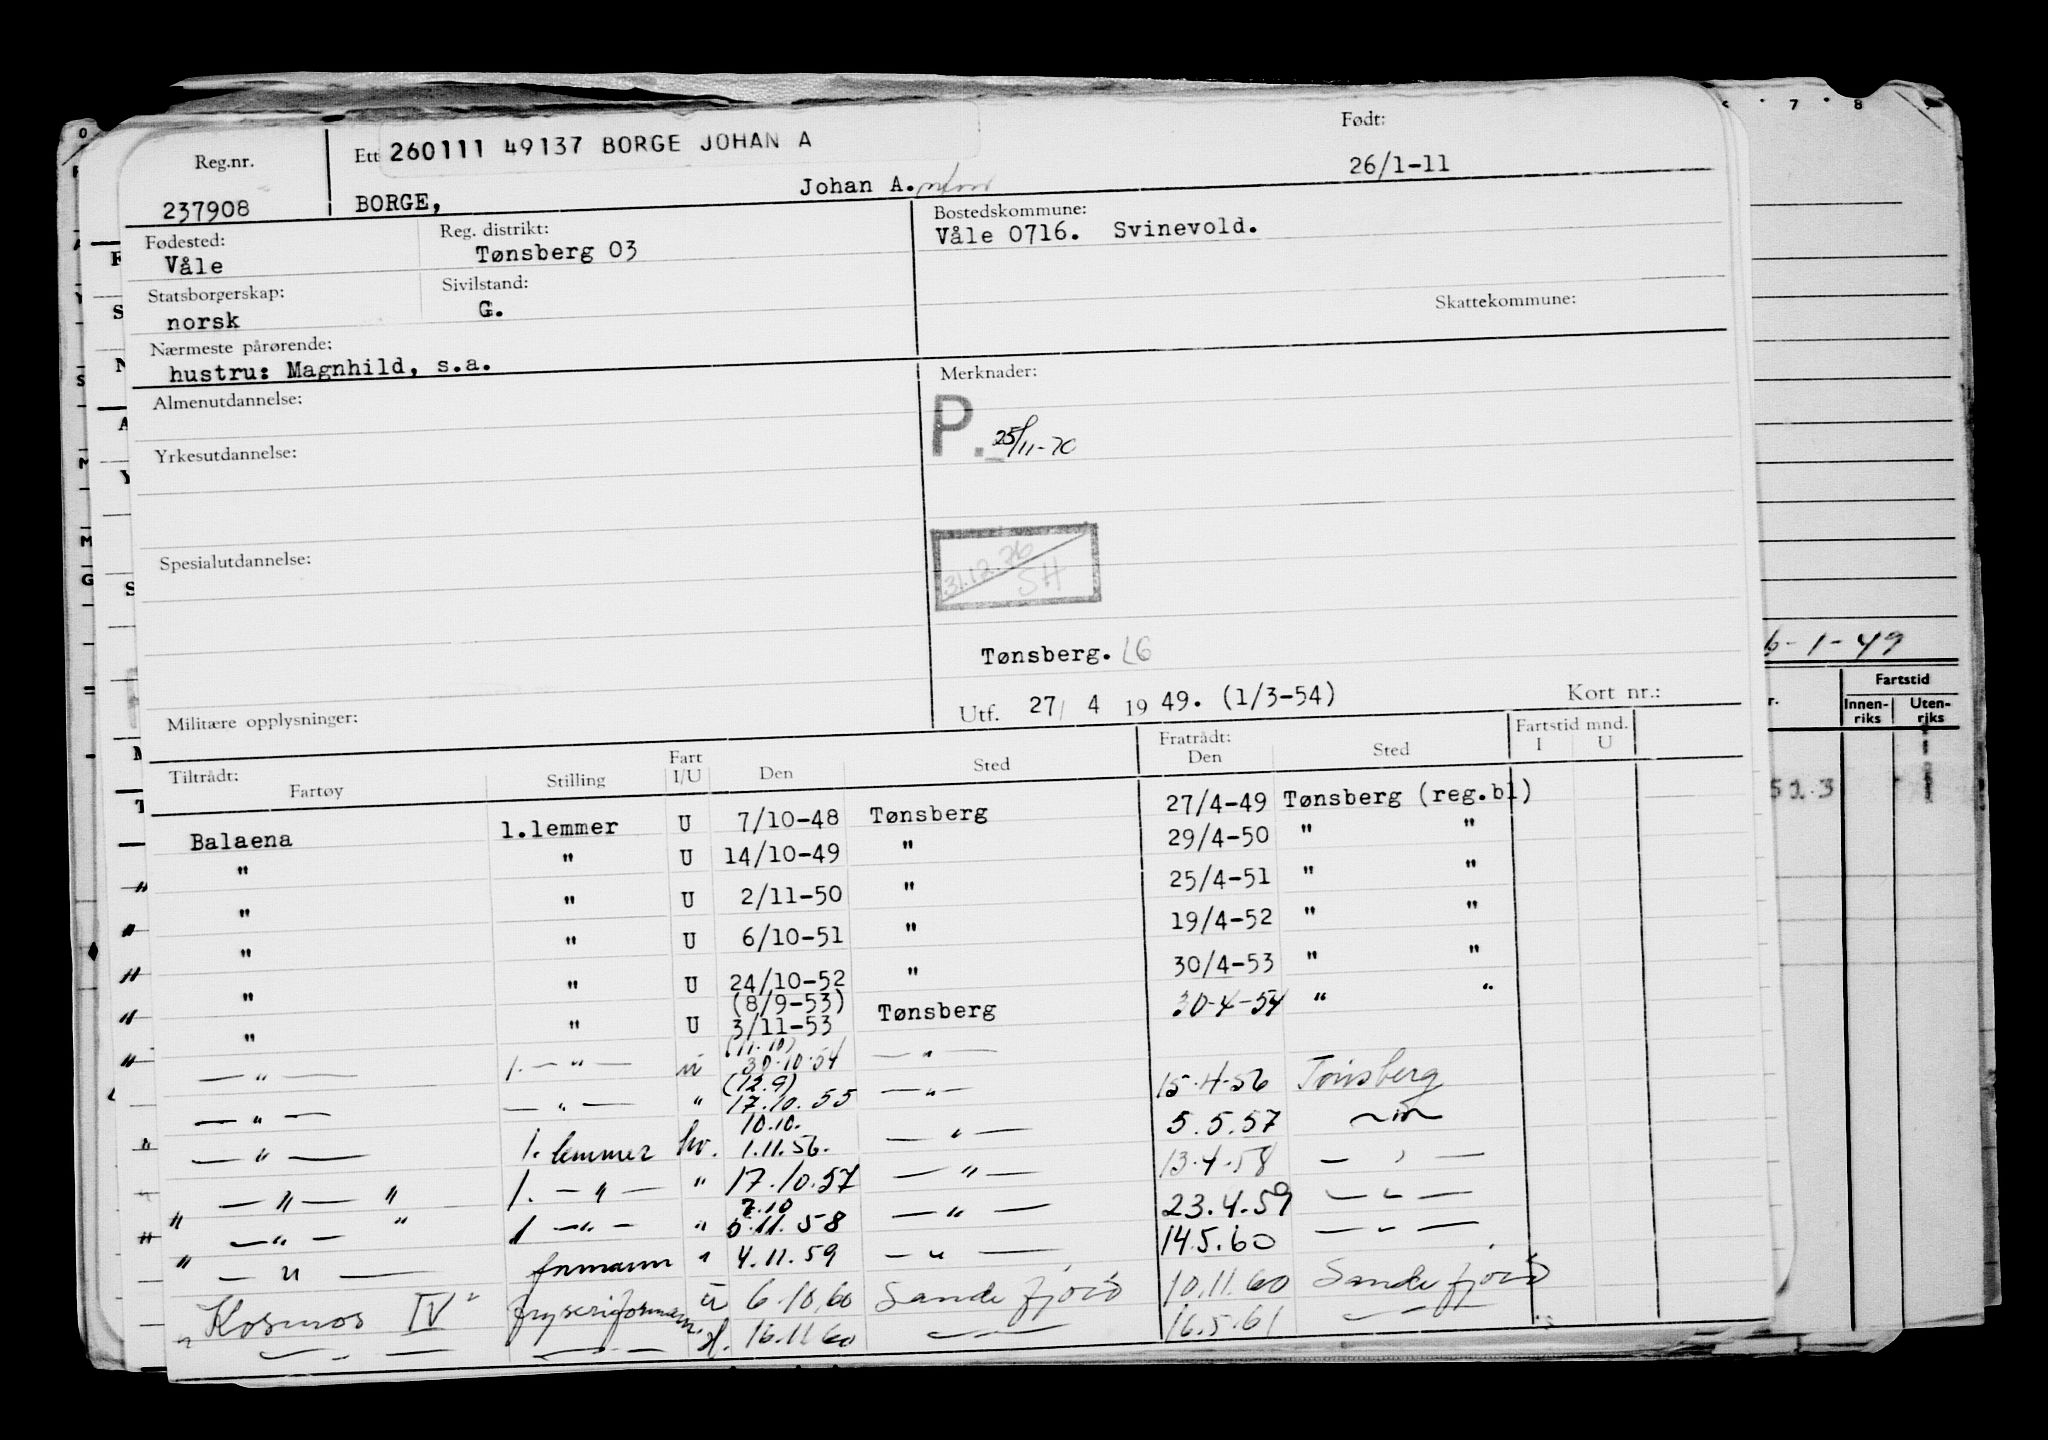 Reg.nr.
237908
Ett 260111 49137 BORGE JOHAN A
BORGE, Johan A.
Født:
26/1-11
Fødested:
Våle
Reg. distrikt:
Tønsberg 03
Bostedskommune:
Våle 0716. Svinevold.
Statsborgerskap:
norsk
Sivilstand:
G.
Skattekommune:
Nærmeste pårørende:
hustru: Magnhild, s.a.
Almenutdannelse:
Yrkesutdannelse:
Spesialutdannelse:
Militære opplysninger:
Merknader:
P. 25/11-70
31.12.76
SH
Tønsberg. LG
Utf. 27/ 4 19 49. (1/3-54) Kort nr.:
Tiltrådt: Fart Fratrådt: Fartstid mnd.
Fartøy Stilling I/U Den Sted Den Sted I U
Balaena 1.lemmer U 7/10-48 Tønsberg 27/4-49 Tønsberg (reg.bl)
" " U 14/10-49 " 29/4-50 " "
" " U 2/11-50 " 25/4-51 " "
" " U 6/10-51 " 19/4-52 " "
" " U 24/10-52 " 30/4-53 " "
(8/9-53)
" " U 3/11-53 Tønsberg 30-4-54 " "
(11.10)
— " — 1. — " — u 30.10.54 — " —
(12.9)
— " — — " — " 17.10.55 — " — 15.4.56 Tønsberg
10.10.
— " — 1. lemmer hv. 1.11.56. — " — 5.5.57 — " —
— " — " 1. — " — " 17.10.57 — " — 13.4.58 — " —
7.10
— " — " 1 — " — " 5.11.58 — " — 23.4.59 — " —
— " — formann " 4.11.59 — " — 14.5.60 — " —
" Kosmos IV " fryseriformann u 6.10.60 Sandefjord 10.11.60 Sandefjord
— " — — " — H. 16.11.60 — " — 16.5.61 — " —
6-1-49
Fartstid
Innen-riks Uten-riks
7 8